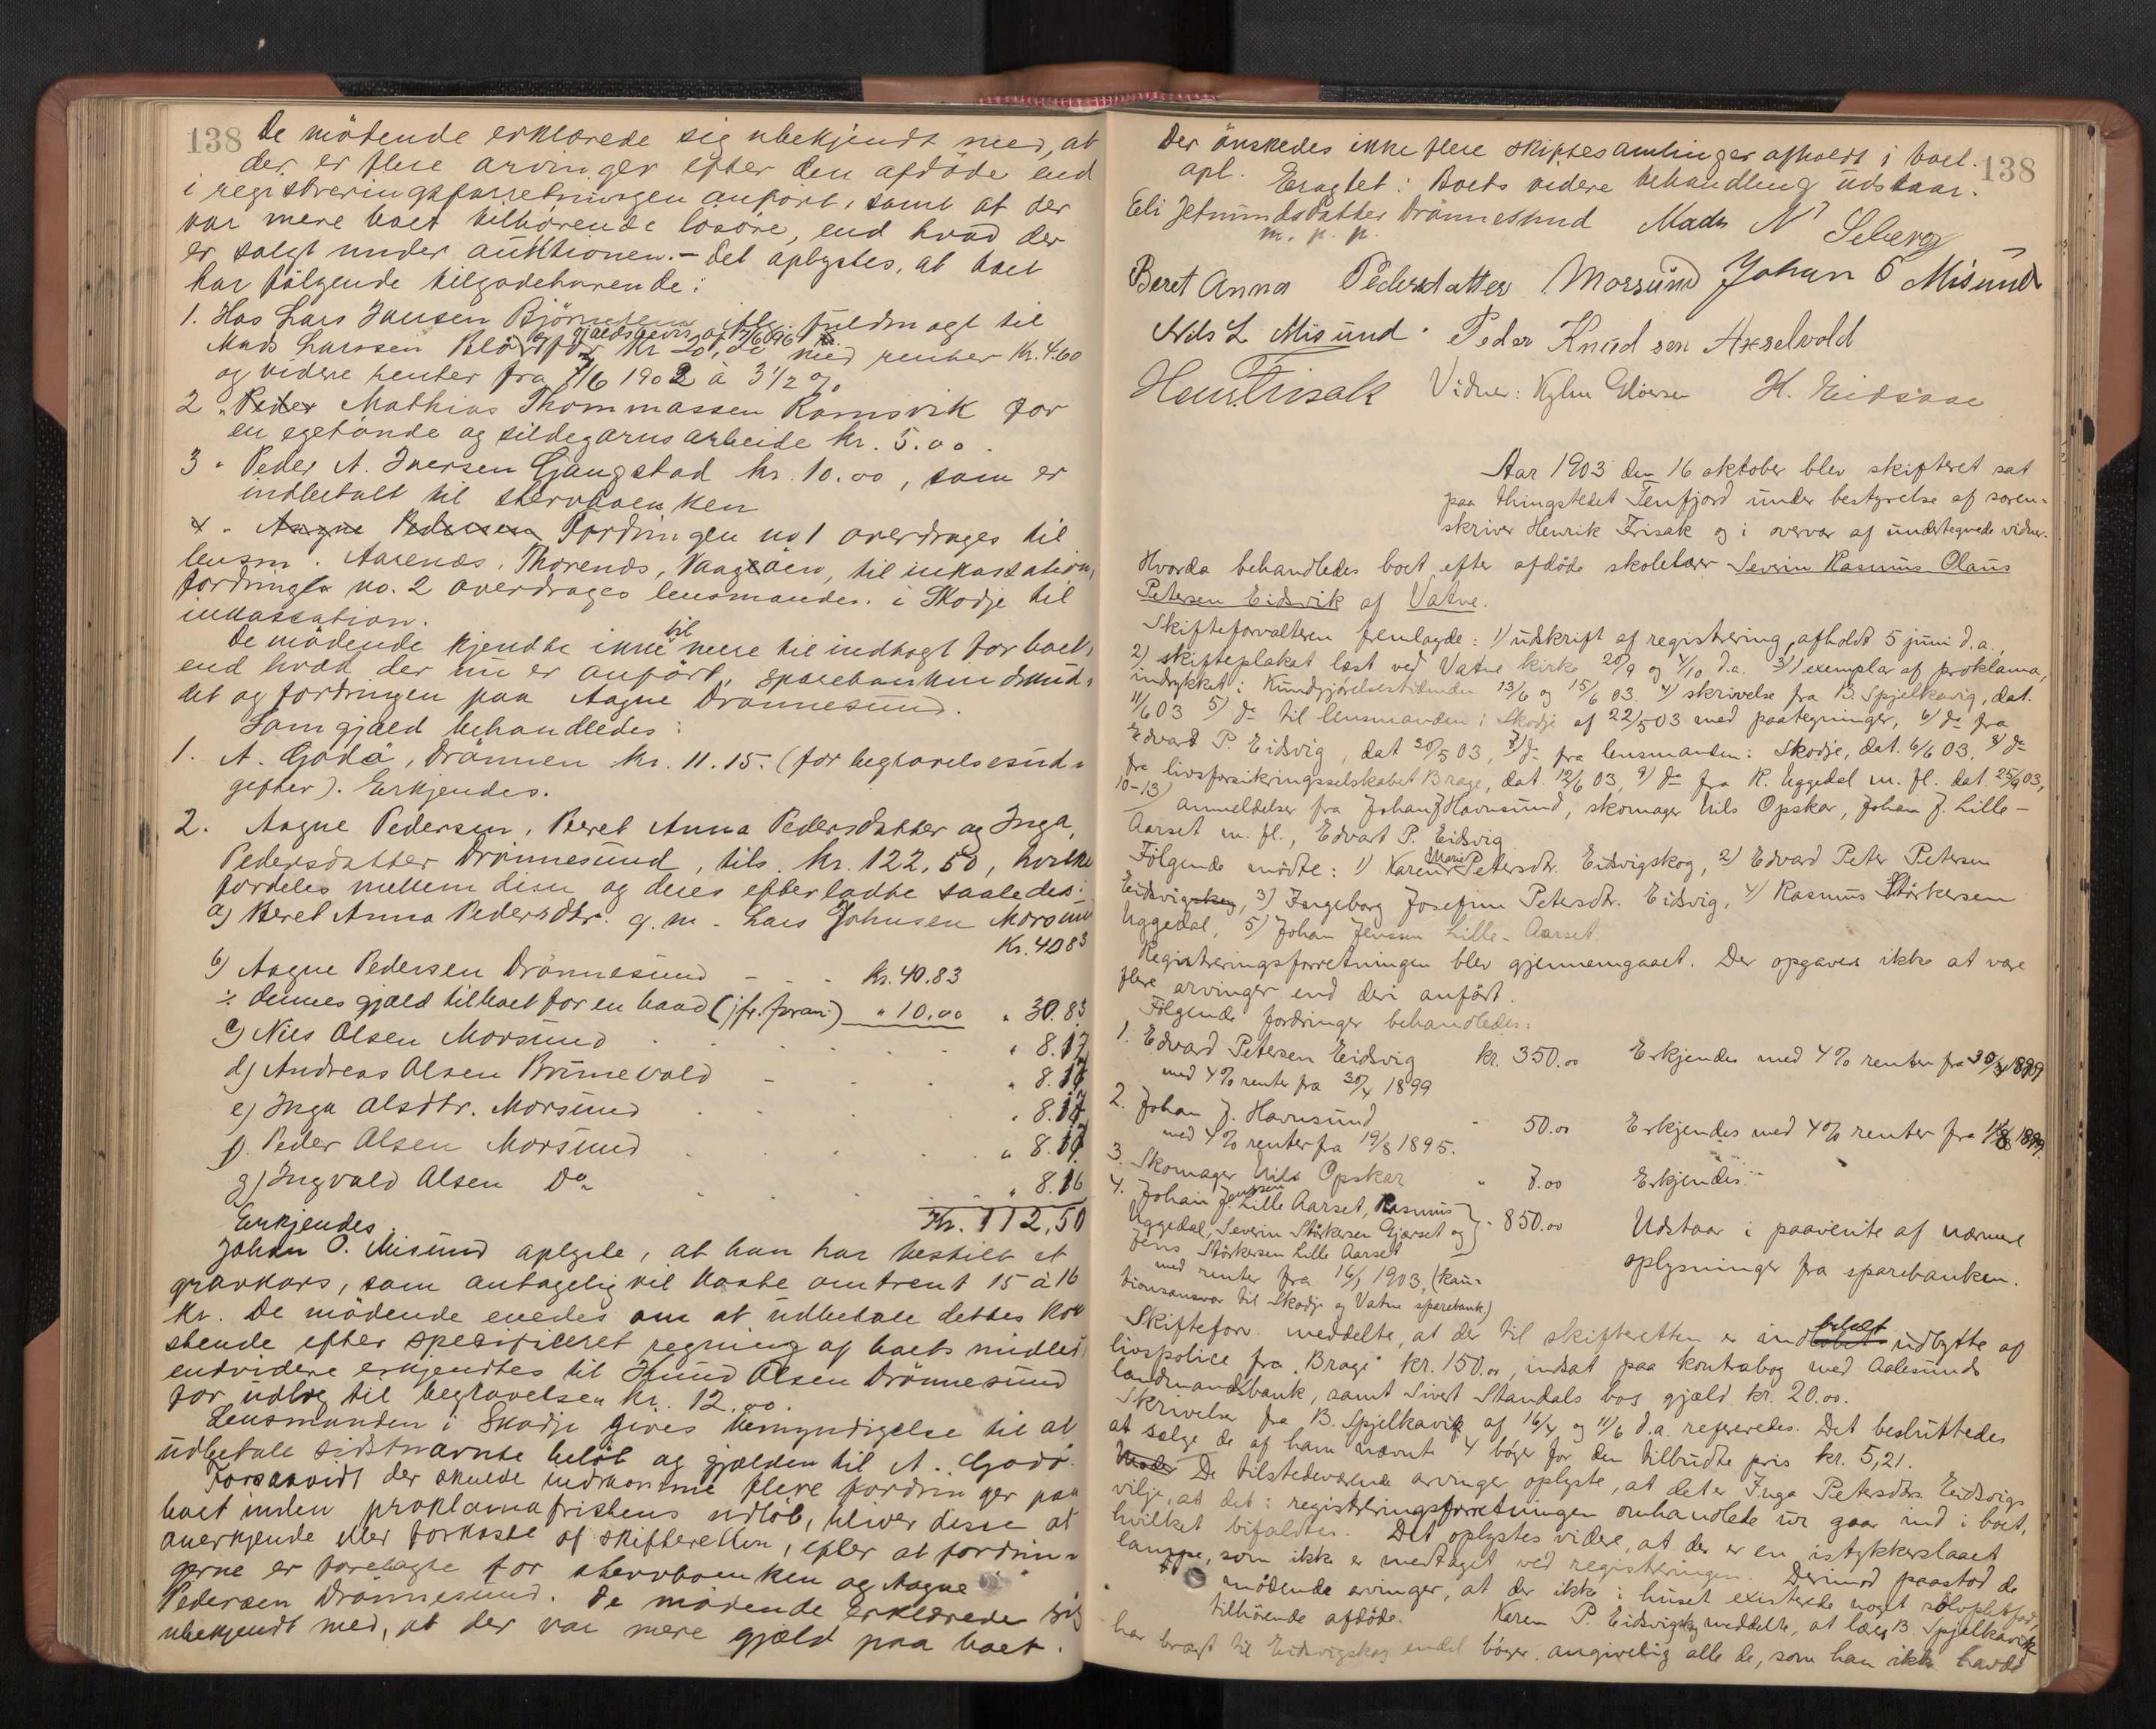 138 De mödende erklærede sig ubekjendt med, at
der er flere arvinger efter den afdöde end
i registreringsforretningen anfört, samt at der
var mere boet tilhörende lösöre, end hvad der
er solgt under auktionen. – Det oplystes, at boet
har fölgende tilgodehavende:
1. Hos Lars Jansen fuldmagt til
Mads Larssen med renter Kr. 4.60
og videre renter fra 7/6 1902 à 3 1/2 %
2 " Peder Mathias Thommassen Ramsvik for
en egetönde og sildegarnsarbeide kr. 5.00.
3 " Peder A. Iversen Gangstad kr. 10.00, som er
indbetalt til stervboenken
4 " Aagne Pedersen Fordringen no 1 overdrages til
lensm. Aarenæs, Thorenæs, til inkassation,
fordringen no. 2 overdrages lensmanden i Skodje til
inkassation.
De mödende kjendte ikke til mere til indtægt for boet,
end hvad der nu er anfört, sparebankindskud-
det og fordringen paa Aagne Drönnesund.
Som gjæld behandledes:
1. A. Godö, Drönnen kr. 11.15. (for begravelsesud-
gifter). Erkjendes.
2. Aagne Pedersen, Beret Anna Pedersdatter og Inga
Pedersdatter Drönnesund, tils. kr. 122,50, hvilke
fordeles mellem disse og deres efterladte saaledes:
a) Beret Anna Pedersdtr. g. m. Lars Johnsen Morsund
Kr. 40 83
b) Aagne Pedersen Drönnesund - - - Kr. 40.83
÷ dennes gjæld til boet for en baad (jfr. foran) " 10.00 " 30.83
c) Nils Olsen Morsund " 8.17
d) Andreas Olsen Brunevold - " 8.17
e) Inga Olsdtr. Morsund " 8.17
f). Peder Olsen Morsund " 8.17
g) Ingvald Olsen Do " 8.16
Erkjendes. Kr. 112,50
Johan O. Misund oplyste, at han har bestilt et
gravkors, som antagelig vil koste omtrent 15 à 16
kr. De mödende enedes om at udbetale dettes kos
stende efter specificeret regning af boets midler,
endvidere erkjendtes til Knud Olsen Drönnesund
for udlæg til begravelsen kr. 12.00.
Lensmanden i Skodje gives bemyndigelse til at
udbetale sidstnævnte belöb og gjælden til A. Godö.
Forsaavidt der skulde indkomme flere fordringer paa
boet inden proklamafristens udlöb, bliver disse at
anerkjende eller forkaste af skifteretten, efter at fordrin-
gerne er forelagte for stervboenken og Aagne
Pedersen Drönnesund. De mödende erklærede sig
ubekjendt med, at der var mere gjæld paa boet.
Der önskedes ikke flere skiftesamlinger afholdt i boet. 138
opl. Eragtet: Boets videre behandling udstaar.
Eli Jetmundsdatter Drönnesund Mads N Seberg
m. p. p.
Beret Anna Pedersdatter Morsund Johan O Misund
Nils L Misund. Peder Knudsen Axselvold
Henr. Frisak Vidner: H. Eidsaae
Aar 1903 den 16 oktober blev skifteret sat
paa thingstedet Tenfjord under bestyrelse af soren-
skriver Henrik Frisak og i overvær af undertegnede vidner.
Hvorda behandledes boet efter afdöde skolelærer Severin Rasmus Olaus
Petersen Eidsvik af Vatne.
Skifteforvalteren fremlagde: 1) udskrift af registrering, afholdt 5 juni d.a.,
2) skifteplakat læst ved Vatne kirke 20/9 og 4/10 d.a. 3) exemplar af proklama,
indrykket i Kundgjørelsestidende 13/6 og 15/6 03 4) skrivelse fra B. Spjelkavig, dat.
11/6 03 5) do til lensmanden i Skodje af 22/5 03 med paategninger, 6) do fra
Edvard P. Eidsvig, dat 20/5 03, 7) do fra lensmanden i Skodje, dat. 6/6 03, 8) do
fra livsforsikringsselskabet Brage, dat. 12/6 03, 9) do fra R. Uggedal m. fl. dat. 25/9 03,
10-13) anmeldelser fra Johan J Havnsund, skomager Nils Opskar, Johan J. Lille-
Aarset m. fl., Edvart P. Eidsvig
Fölgende mödte: 1) Karen Marie Petersdtr. Eidsvigskog, 2) Edvard Peter Petersen
Eidsvigskog, 3) Ingeborg Josefine Petersdtr. Eidsvig, 4) Rasmus Störkersen
Uggedal, 5) Johan Jenssen Lille-Aarset.
Registreringsforretningen blev gjennemgaaet. Der opgaves ikke at være
flere arvinger end deri anfört.
Fölgende fordringer behandledes:
1. Edvard Petersen Eidsvig kr. 350.00 Erkjendes med 4 % renter fra 30/4 1899
med 4 % renter fra 30/4 1899
2. Johan J. Havnsund " 50.00 Erkjendes med 4 % renter fra
med 4 % renter fra 19/8 1895.
3. Skomager Nils Opskar " 7.00 Erkjendes.
4. Johan Jenssen Lille Aarset, Rasmus
Uggedal, Severin Störkersen Gjærset og " 850.00 Udstaar i paavente af nærmere
Jens Störkersen Lille Aarset oplysninger fra sparebanken.
med renter fra 16/1 1903, (kau-
tionsansvar til Skodje og Vatne sparebank)
Skifteforv. meddelte, at der til skifteretten er indbetalt udbytte af
livspolice fra "Brage" kr. 150.00, indsat paa kontrabog med Aalesunds
landmandsbank, samt Sivert Standals bos gjæld kr. 20.00.
Skrivelser fra B. Spjelkavik af 16/4 og 11/6 d.a. refereredes. Det besluttedes
at sælge de af ham nævnte 4 böger for den tilbudte pris kr. 5,21.
De tilstedeværende arvinger oplyste, at det er Inga Petersdtrs. Eidsvigs
vilje, at det i registreringsforretningen omhandlede ur gaar ind i boet,
hvilket bifaldtes. Det oplystes videre, at der er en istykkerslaaet
lampe, som ikke er medtaget ved registreringen. Derimod paastod de
mödende arvinger, at der ikke i huset existerede noget sölvpletfad,
tilhörende afdöde. Karen P. Eidsvigskog meddelte, at lærer B. Spjelkavik
har bragt til Eidsvigskog endel böger, angivelig alle de, som han ikke havde